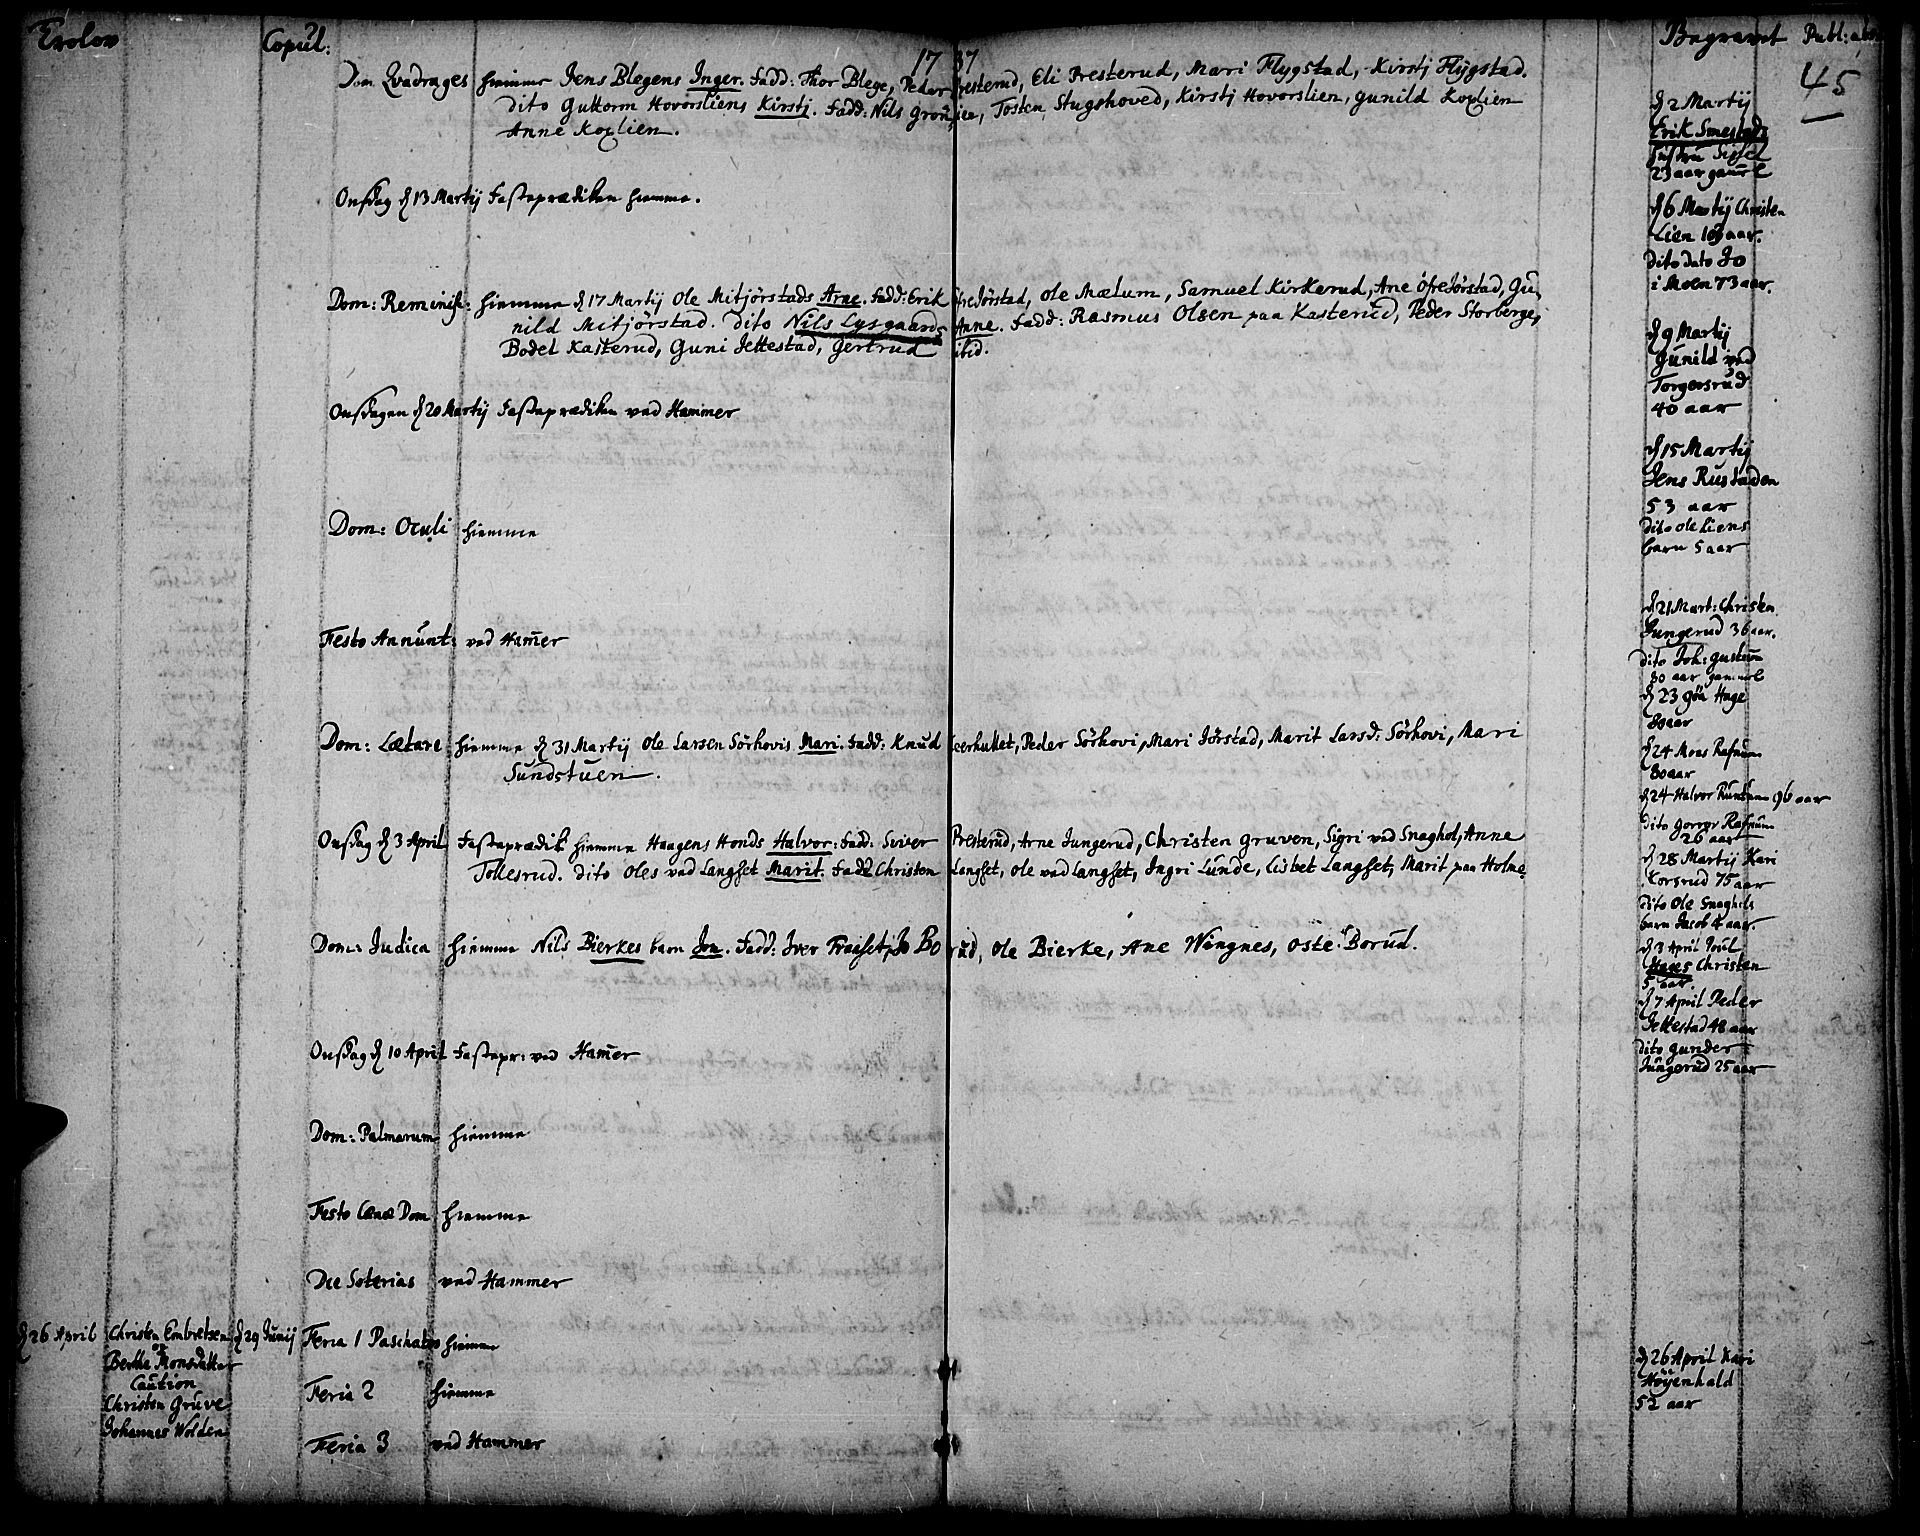 Trolov
Copúl:
1737
Begravet
Publ: abs:
45
Dom Qvadrages hiemme Jens Blegens Inger. Fadd: Thor Blege, Peder Presterud, Eli Presterud, Mari Flygstad, Kirstj Flÿgstad.
dito Guttorm Hovorsliens Kirstj. Fadd: Nils Tosten Stugshoved, Kirstj Hovorslien, gunild Koxlien
Anne Koxlien.
Onsdag d 13 Martij Fasteprædiken hiemme.
Dom: Reminisc: hiemme d 17 Martij Ole Mitjörstads Arne. Fadd: Erik öfreJörstad, Ole Mælum, Samuel Kirkerud, Ane öfreJörstad, Gu-
nild Mitjörstad. dito Nils Lysgaards Anne. Fadd: Rasmus Olsen paa Kasterud, Peder Storberge,
Bodel Kasterud, Guni Jettestad, Gertrud ibid.
Onsdagen d 20 Martij Fasteprædiken ved Hammer
Dom: Oculi hiemme
Festo Annunt: ved Ham̄er
Dom: Lætare hiemme d 31 Martij Ole Larsen Sörhovis Mari. Fadd: Knud Peder Sörhovi, Mari Jörstad, Marit Larsd: Sörhovi, Mari
Sundstuen.
Onsdag d 3 April Fasteprædik hiemme Haagens Honds Halvor: Fadd: Siver Presterud, Arne Jungerud, Christen Gruven, Sigri ved Snaghol, Anne
Tollesrud. dito Oles ved Langset Marit. Fadd Christen Langset, Ole ved Langset, Ingri Lunde, Lisbet Langset, Marit paa Holme.
Dom: Judica hiemme Nils Bierkes barn Jon. Fadd: Iver Fraaset, Jo Borud, Ole Bierke, Ane Wingnes, Oste Borud.
Onsdag d 10 April Fastepr: ved Ham̄er
Dom: Palmarum hiemme
Festo Cænæ Dom hiemme
Die Soterias ved Hammer
d 26 April Christen Embretsen d 29 Junij Feria 1 Paschatos hiemme
og
Berthe Monsdatter
Caution
Christen Gruve
Johannes Wolden
Feria 2 hiemme
Feria 3 ved Hammer
d 2 Martij
Erik Smestads
Hustru Sissel
23 aar gaml
d 6 Martij Christen
Lien 100 aar.
dito dato Jo
i Moen 73 aar.
d 9 Martij
Gunild ved
Torgersrud
40 aar
d 15 Martij
Jens Rustaden
53 aar
dito Ole Liens
barn 5 aar
d 21 Mart: Christen
Jungerud 36 aar.
dito Joh: Gustum
80 aar gammel
d 23 Hage
80 aar
d 24 Mons Rafnum
80 aar
d 24 Halvor 96 aar
dito Rafnum
26 aar
d 28 Martij Kari
Korsrud 75 aar
dito Ole Snaghols
barn Jacob 4 aar.
d 3 April Poul
Hages Christen
5 aar.
d 7 April Peder
Jettestad 48 aar
dito Gunder
Jungerud 25 aar
d 26 April Kari
Höÿenhald
52 aar